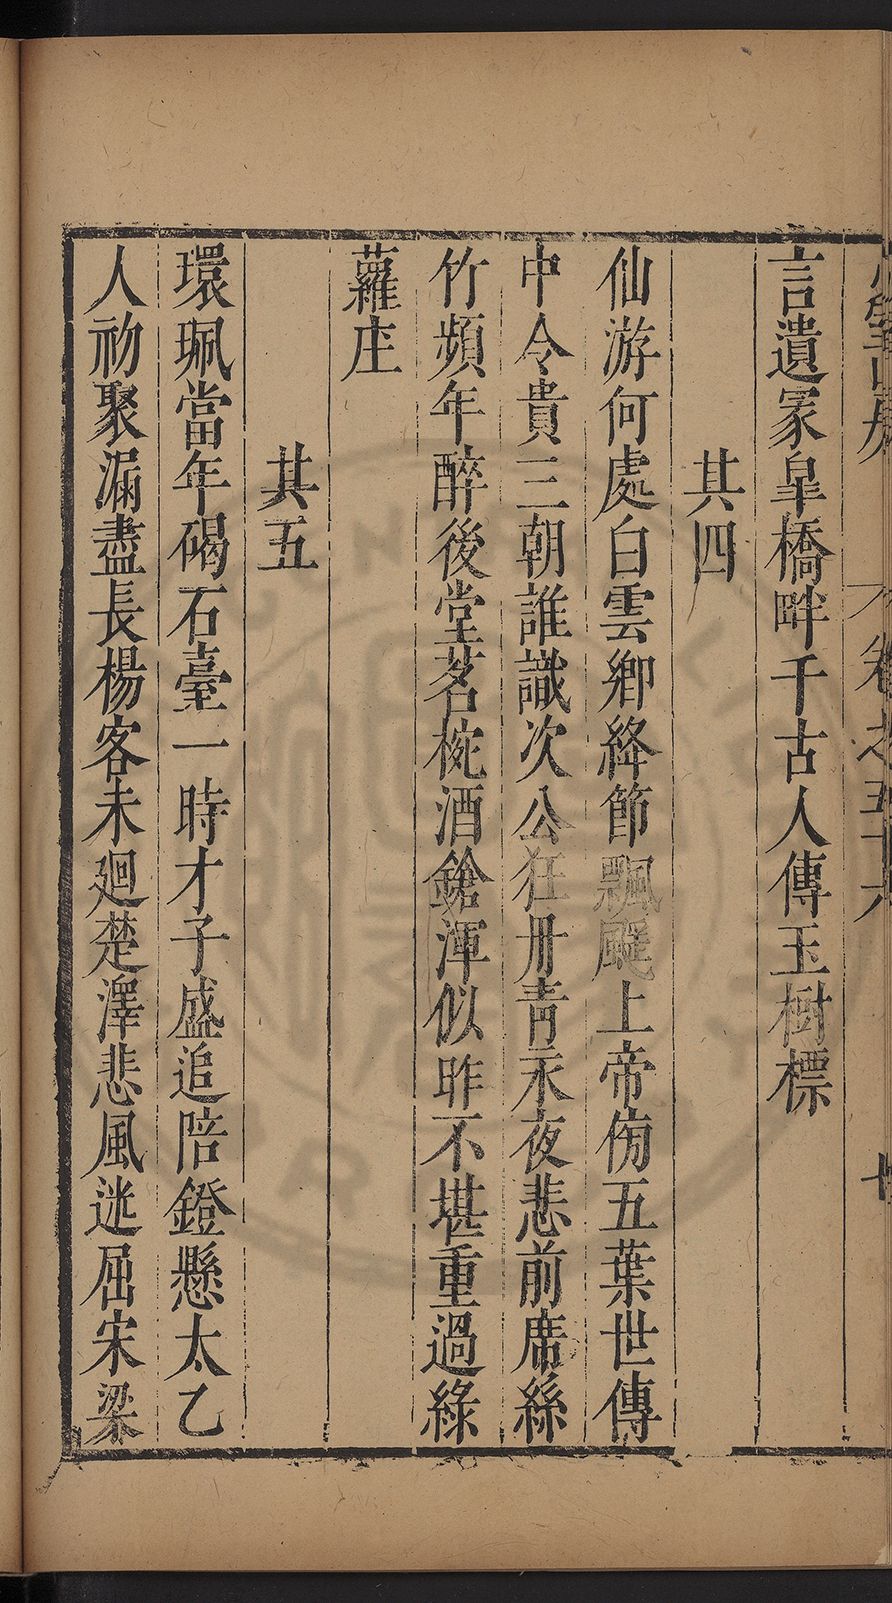 卷之五十六
十
言遺冢皐橋畔千古人傳玉樹標
其四
仙游何處白雲鄉絳節飄颻上帝傍五葉世傳
中令貴三朝誰識次公狂丹青永夜悲前席絲
竹頻年醉後堂茗椀酒鎗渾似昨不堪重過綠
蘿庄
其五
環珮當年碣石臺一時才子盛追陪鐙懸太乙
人初聚漏盡長楊客未廻楚澤悲風迷屈宋梁